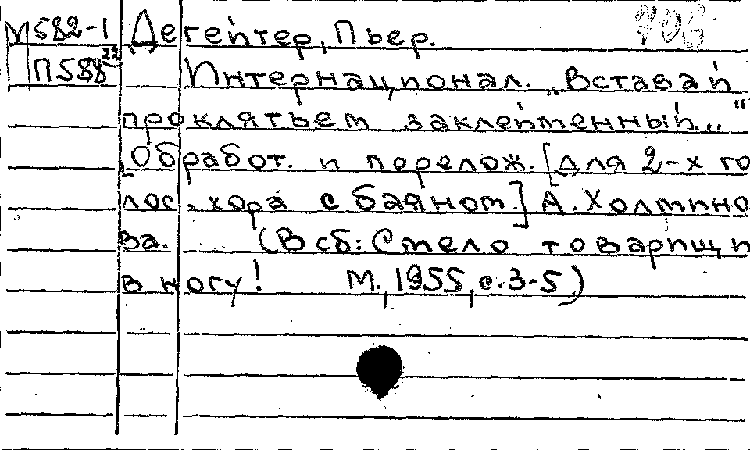 М582-1 Дегейтер, Пьер.
П588²² Интернационал. „Вставай
проклятьем заклейменный..."
Обработ. и перелож. [для 2-х го
лос. хора с баяном.] А. Холмино
ва. (В сб: Смело товарищи
в ногу! М., 1955, с. 3-5)